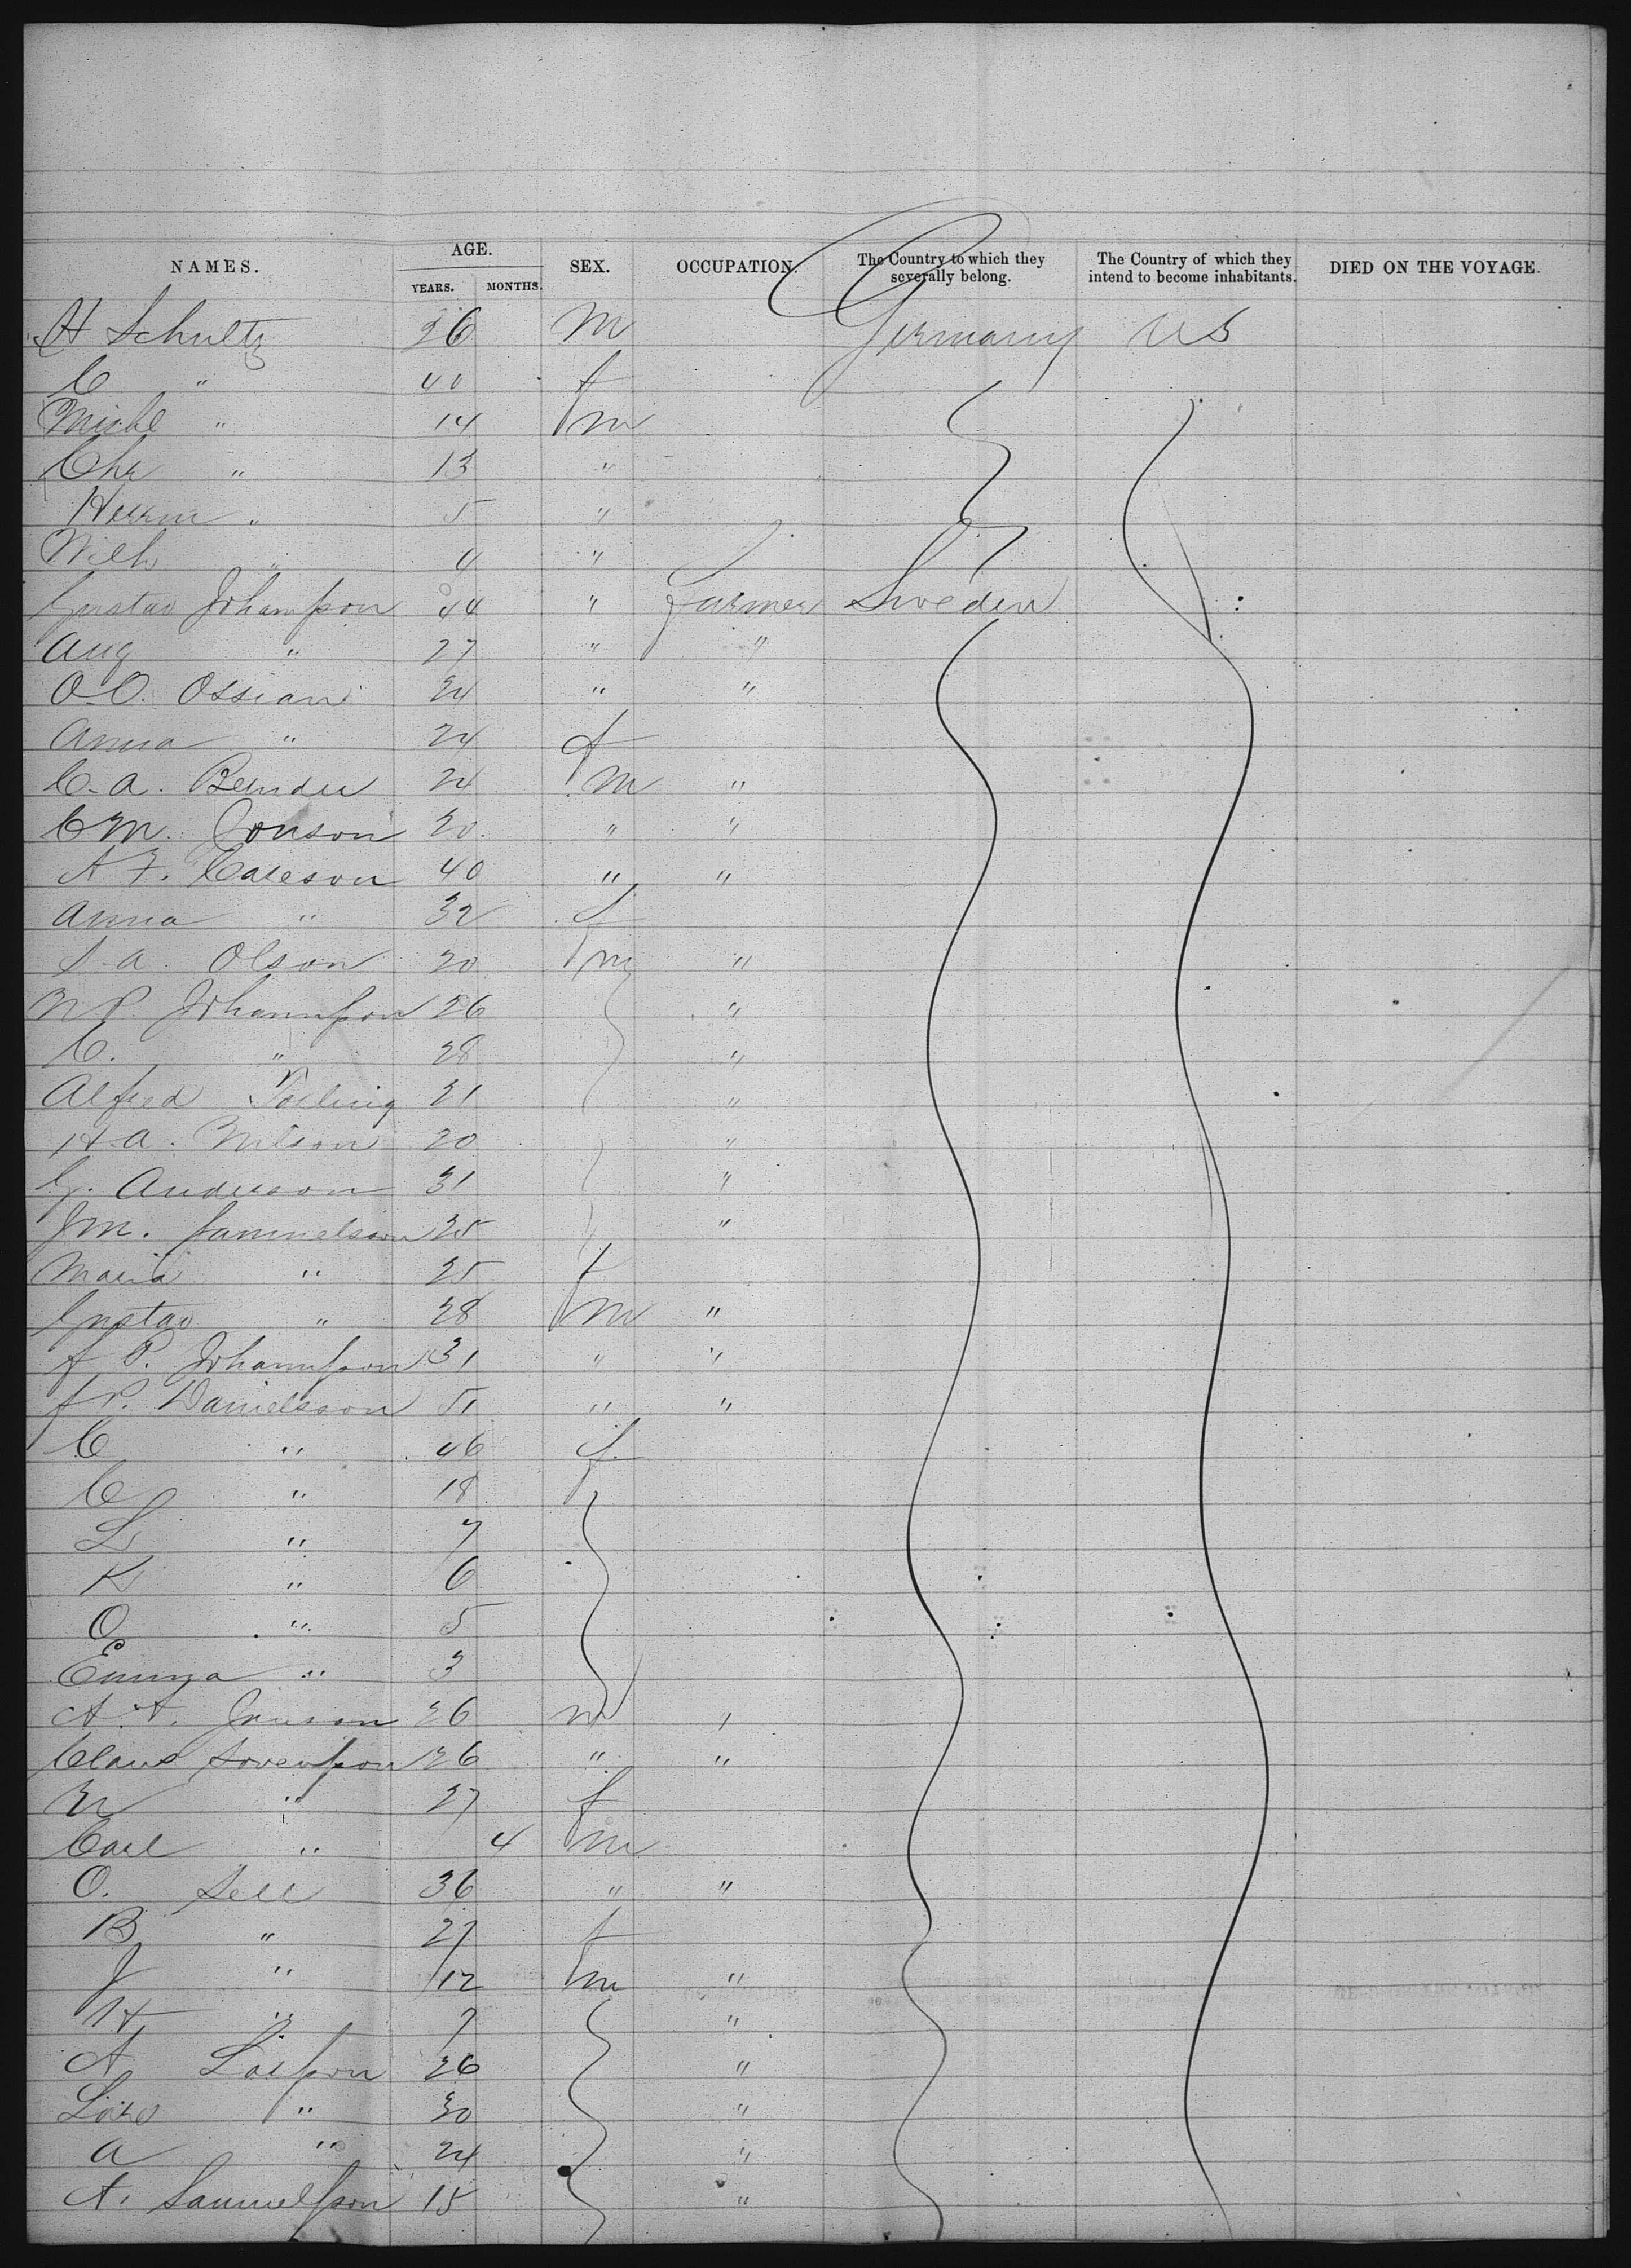 NAMES. AGE. SEX. OCCUPATION. The Country to which they severally belong. The Country of which they intend to become inhabitants. DIED ON THE VOYAGE.
YEARS. MONTHS.
H Schultz 36 m Germany US
C " 40 f
Michl " 14 m
Chr " 13 "
Herrm " 5 "
Wilh " 4 "
Gustav Johansson 44 " Farmer Sweden
Aug " 27 " "
O.O. Ossian 34 " "
Anna " 24 f
C.A. 24 m "
C M. Jonson 20 " "
A F. Carlson 40 " "
Anna " 32 f
S.A. Olson 20 m "
N P. Johannsson 26 "
C. " 28 "
Alfred 21 "
H.A. Nilson 20 "
G. Anderson 31 "
J M. Samuelson 35 "
Maria " 25 f
Gustav " 28 m "
A P. Johannsson 31 " "
J P. Danielsson 51 " "
C " 46 f
C " 18
L " 7
K " 6
O " 5
Emma " 3
A. A. Janson 26 m "
Claus Svensson 26 " "
N " 27 f
Carl " 4 m
O. Sell 36 " "
B " 27 f
J " 12 m "
H " 9 "
A Larsson 26 "
Lars " 30 "
A " 24 "
A. Samuelsson 15 "